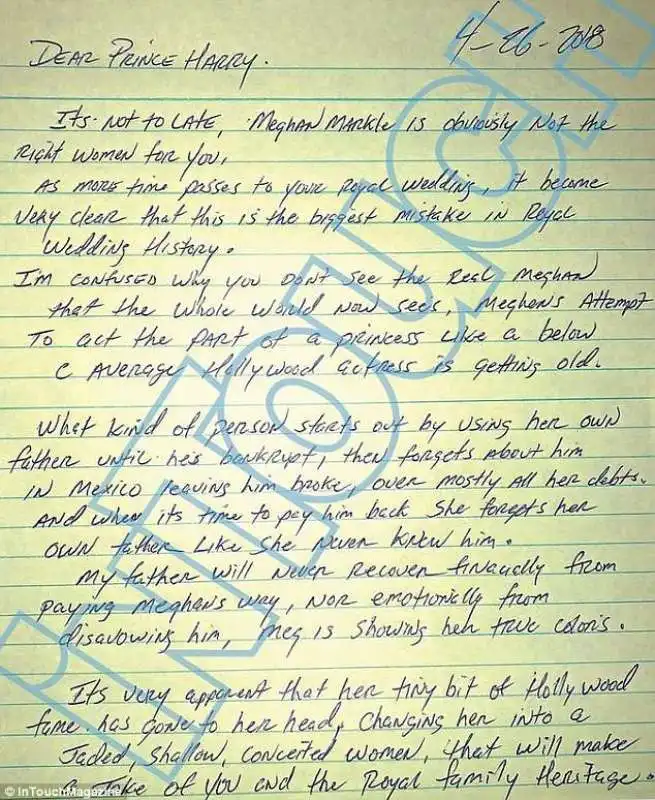 4-26-2018
DEAR PRINCE HARRY.
Its. Not to LATE, MeghAN MARKle is obviously Not the
Right Women for you,
As more time passes to your Royal wedding, it became
very clear that this is the biggest mistake in Royal
wedding History.
I'm confused why you Don't See the Real Meghan
that the whole world Now sees, Meghan's Attempt
To act the PART of a princess Like a below
C Average Hollywood actress is getting old.
What kind of person starts out by using her own
father until he's bankrupt, then forgets about him
IN Mexico leaving him broke, over mostly all her debts.
And when its time to pay him back she forgets her
own father Like She Never Knew him.
My father will Never Recover finacially from
paying Meghan's way, Nor emotionally from
disavowing him, Meg is showing her true colors.
Its very apparent that her tiny bit of Hollywood
fame has gone to her head, Changing her into a
Jaded, Shallow, conceited women, that will make
a Joke of you and the Royal family Heritage.
INTOUCH
© InTouchMagazine